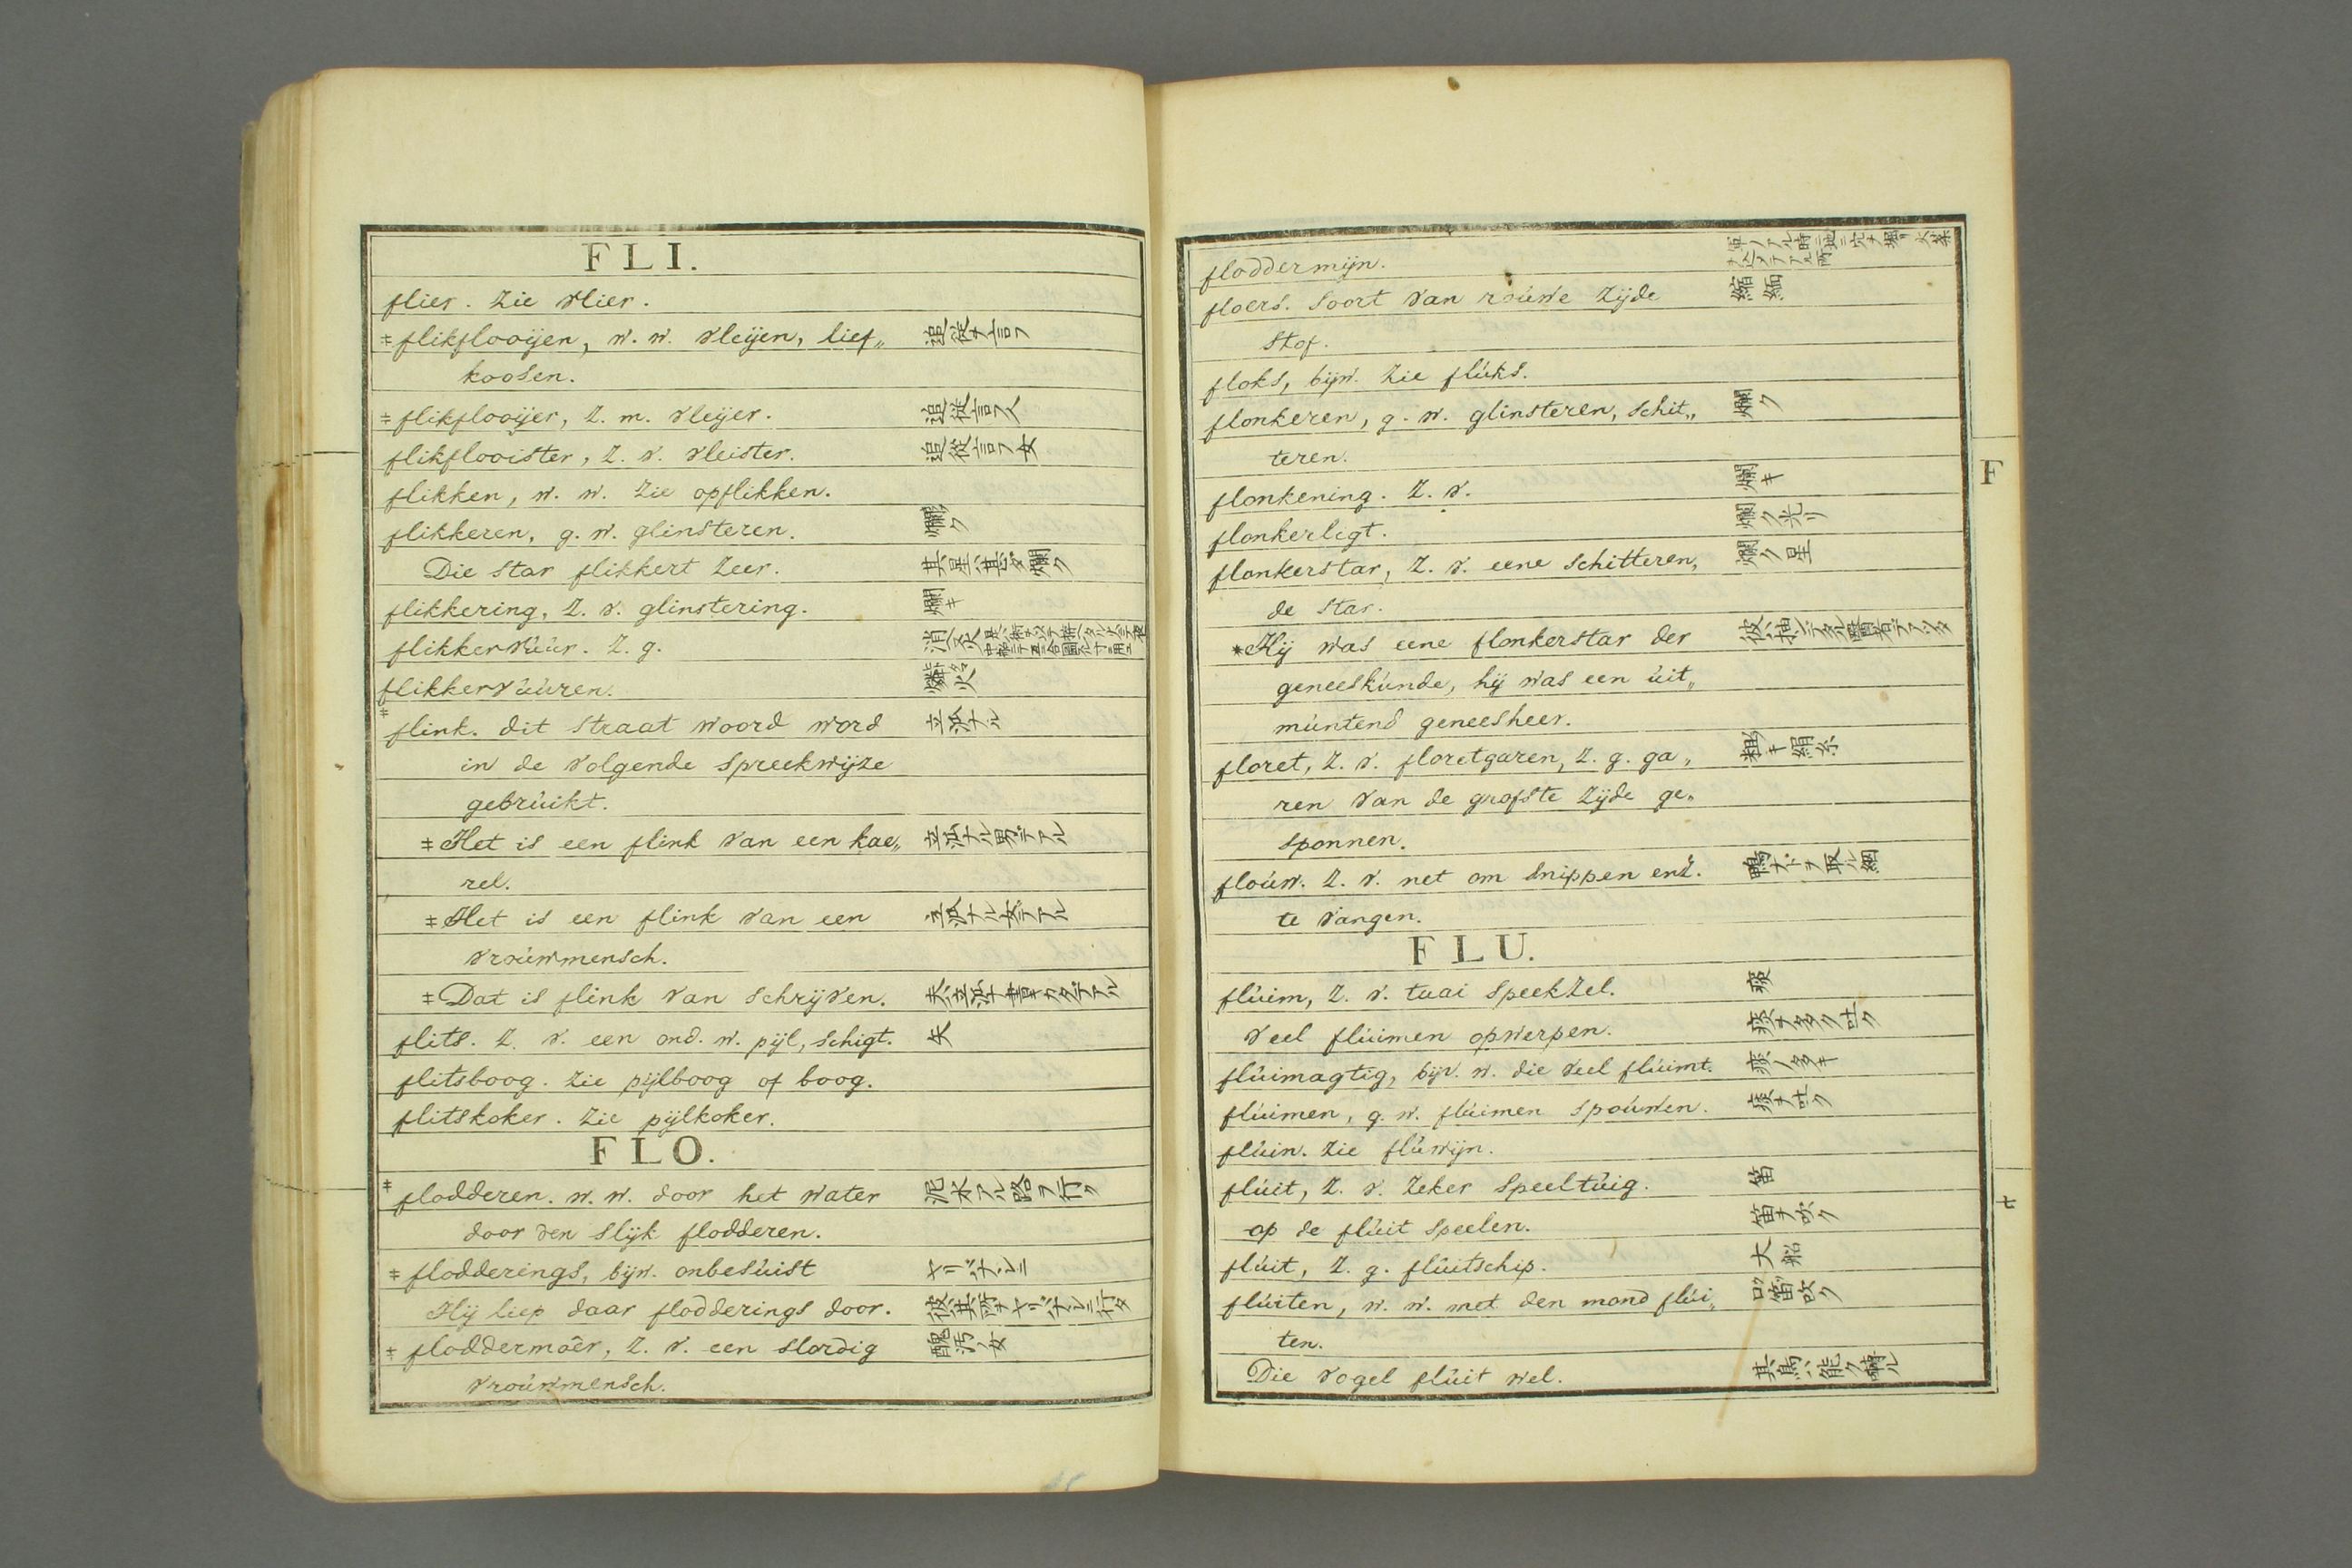 FLI.
flier. Zie vlier.
‡ flikflooijen, w. w. vleijen, lief„ 追從ヲ言フ
koosen.
‡ flikflooijer, z. m. vleijer. 追從言フ人
flikflooister, z. v. vleister. 追從言フ女
flikken, w. w. Zie opflikken.
flikkeren, g. w. glinsteren. 爛ク
Die star flikkert zeer. 其星ハ甚ダ爛ク
flikkering, z. v. glinstering. 爛キ
flikkervúúr. z. g.
flikkervúúren.
‡ flink. dit straat woord word 立派ナル
in de volgende spreekwijze
gebrúikt.
‡ Het is een flink van een kae„ 立派ナル男デアル
rel.
‡ Het is een flink van een 立派ナル女デアル
vroúwmensch.
‡ Dat is flink van schrijven. 夫ハ立派ナ書キカタデアル
flits. z. v. een ond. w. pijl, schigt. 矢
flitsboog. Zie pijlboog of boog.
flitskoker. Zie pijlkoker.
FLO.
‡ flodderen. w. w. door het water 泥水アル路ヲ行ク
door den slijk flodderen.
‡ flodderings, bijw. onbesúist ヤリバナシニ
Hij liep daar flodderings door. 彼ハ其所ヲヤリバナシニ行タ
‡ floddermoêr, z. v. een slordig 醜汚ノ女
vroúwmensch.
floddermijn.
floers. Soort van roúwe zijde 縮緬
stof.
floks, bijw. Zie flúks.
flonkeren, g. w. glinsteren, schit„ 爛ク
teren.
flonkening. z. v. 爛キ
flonkerligt. 爛ク光リ
flonkerstar, z. v. eene schitteren„ 爛ク星
de star.
* Hij was eene flonkerstar der 彼ハ抽ンデタル醫者デアッタ
geneeskúnde, hij was een úit„
múntend geneesheer.
floret, z. v. floretgaren, z. g. ga„ 粗キ絹糸
ren van de grofste zijde ge„
sponnen.
floúw. z. v. net om snippen enz. 鴨ナドヲ取ル網
te vangen.
FLU.
flúim, z. v. taai speekzel. 痰
Veel flúimen opwerpen. 痰ヲ多ク吐ク
flúimagtig, bijv. w. die veel flúimt. 痰ノ多キ
flúimen, g. w. flúimen spoúwen. 痰ヲ吐ク
flúin. Zie flúwijn.
flúit, z. v. zeker speeltúig. 笛
op de flúit speelen. 笛ヲ吹ク
flúit, z. g. flúitschip. 大船
flúiten, w. w. met den mond flúi„ 口笛吹ク
ten.
Die vogel flúit wel. 其鳥ハ能ク囀ル
F
七